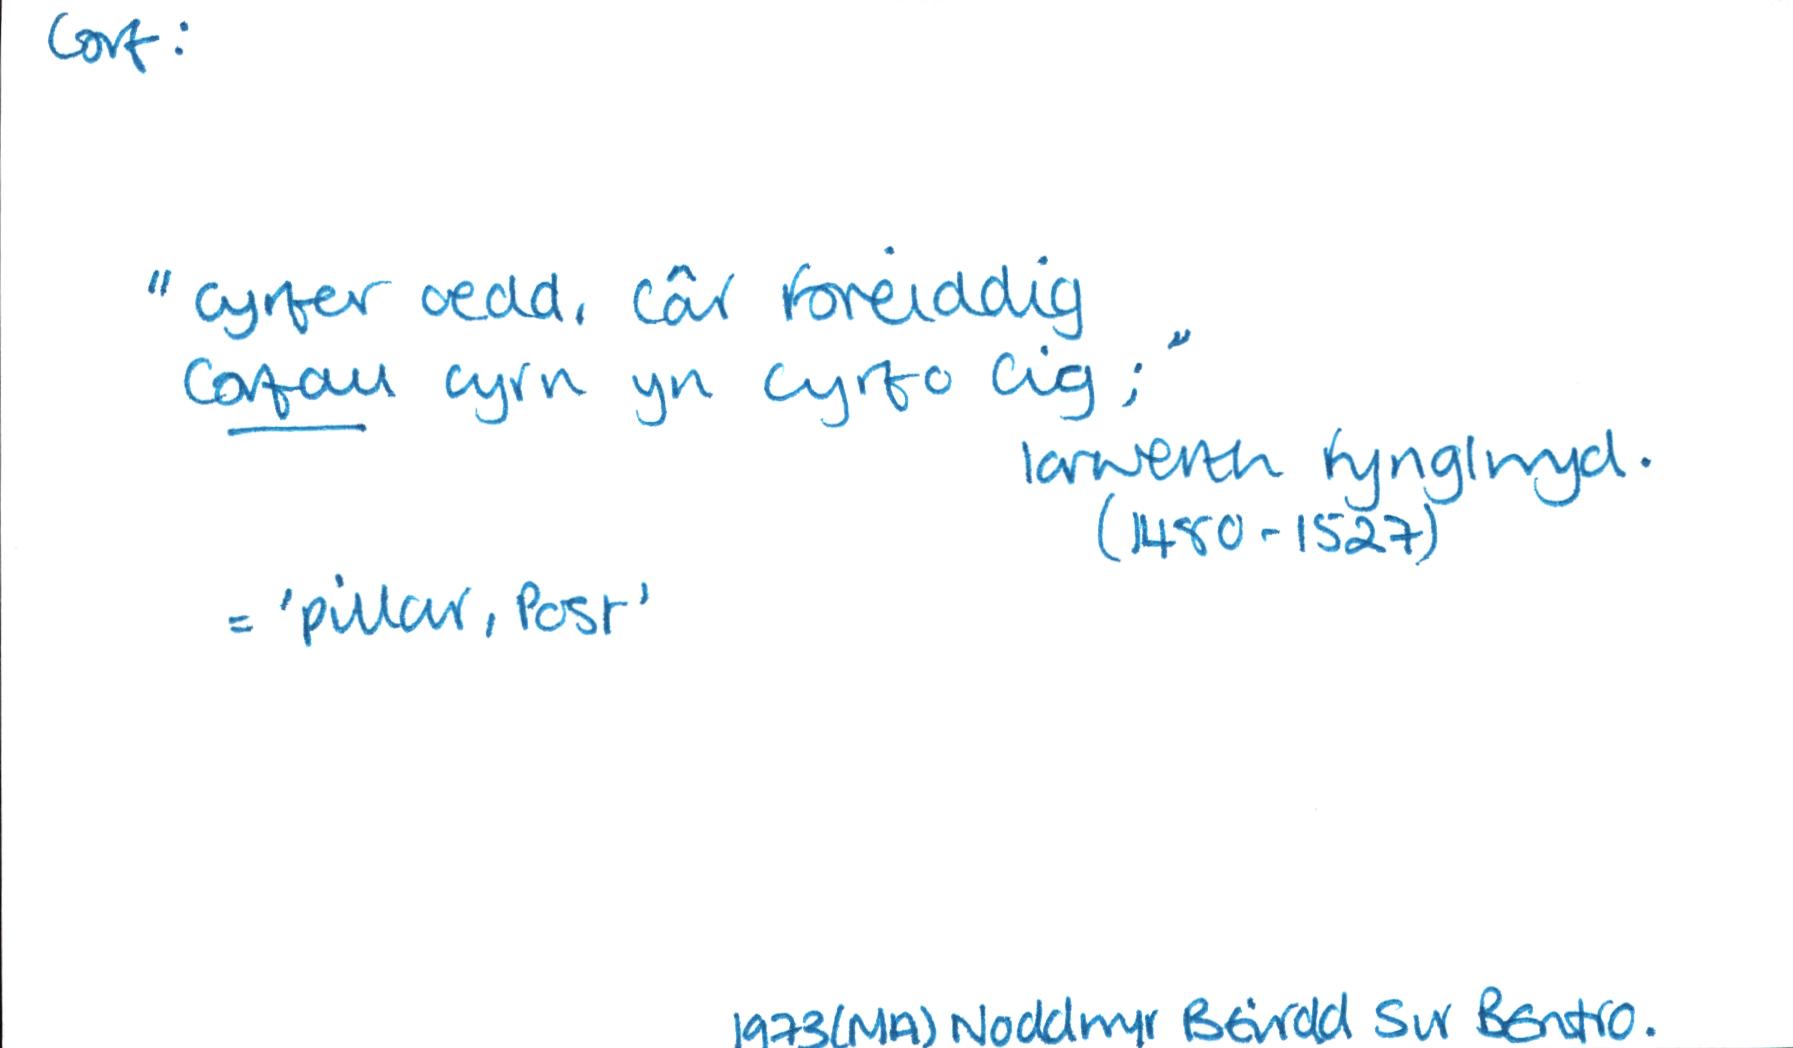 Corf:
"cyrfer oedd, câr foreiddig
Corfau cyrn yn cyrfo cig;"
Iorwerth Fynglwyd.
(1480-1527)
= 'pillar, Post'
1973(MA) Noddwyr Beirdd Sir Benfro.